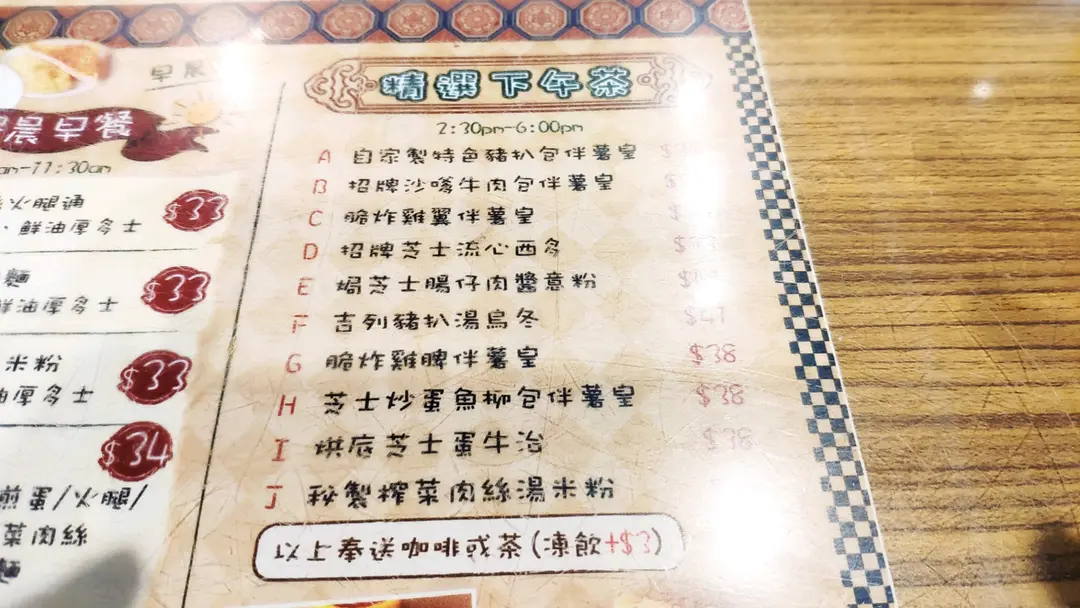 早晨
晨早餐
am-11:30am
火腿通
、鮮油厚多士
$33
麵
鮮油厚多士
$33
米粉
油厚多士
$33
$34
煎蛋/火腿/
菜肉絲
麵
精選下午茶
2:30pm-6:00pm
A 自家製特色豬扒包伴薯皇
B 招牌沙嗲牛肉包伴薯皇
C 脆炸雞翼伴薯皇
D 招牌芝士流心西多
E 焗芝士腸仔肉醬意粉
F 吉列豬扒湯烏冬 $41
G 脆炸雞脾伴薯皇 $38
H 芝士炒蛋魚柳包伴薯皇 $38
I 烘底芝士蛋牛治 $38
J 秘製榨菜肉絲湯米粉
以上奉送咖啡或茶(凍飲+$3)